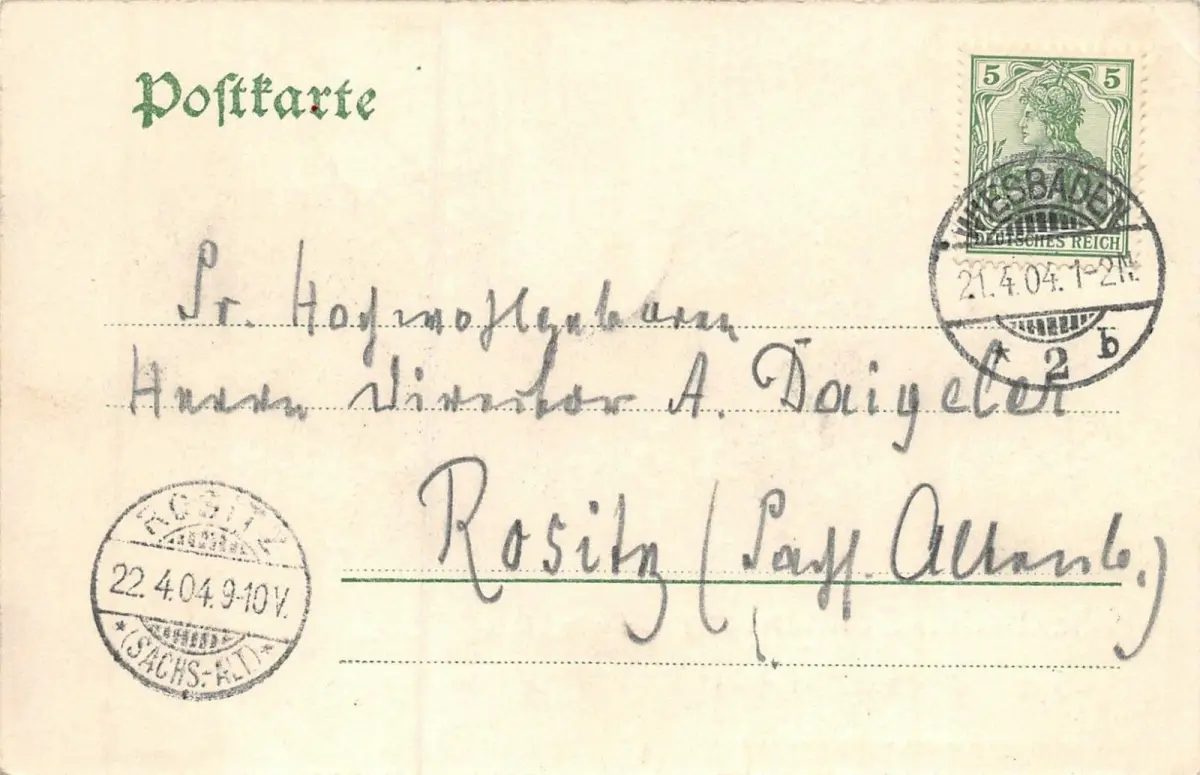 Postkarte
5 5
DEUTSCHES REICH
WIESBADEN
21.4.04. 1-2N.
* 2 b
Sr. Hochwohlgeboren
Herrn Director A. Daigeler
Rositz (Sachs. Altenb.)
ROSITZ
22.4.04. 9-10V.
* (SACHS.-ALT) *